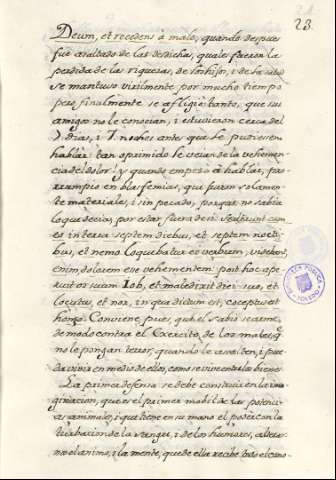 23.
Deum, et recedens à malo, quando despues
fue asaltado de las desdichas, quales fueron la
perdida de las riquesas, de los hijos, i de la salud
se mantuvo virilmente por mucho tiempo
pero finalmente se afligiò tanto, que sus
amigos no le conocian, i estuvieron cerca del
7 dias, i 7 noches antes que le pudiesen
hablar: tan oprimido le veian de la vehemen-
cia del dolor: y quando empesò à hablar, pro-
rrumpio en blasfemias, que fueron solamente
materiales, i sin pecado, porque no sabia
lo que decia, por estar fuera de si. Sederunt cum
eo in terra septem diebus, et septem nocti-
bus, et nemo loquebatur ei verbum, videbant
enim dolorem esse vehementem: post hoc ape-
ruit os suum Iob, et maledixit diei suo, et
locutus, et nox, in qua dictum est, conceptus est
homo. Conviene, pues, que el sabio se arme
de modo contra el Exercito, de los males, q.
no le pongan terror, quando le asalten, i pue-
da vivir en medio de ellos, como se vive entre los bienes.
La primera defensa se debe construir en la ima-
ginacion, que es el primer mobil de las potencias
animales, i que tiene en su mano el poder con la
turbacion de la sangre, i de los humores, alterar-
no el animo, i la mente, que de ella recibe